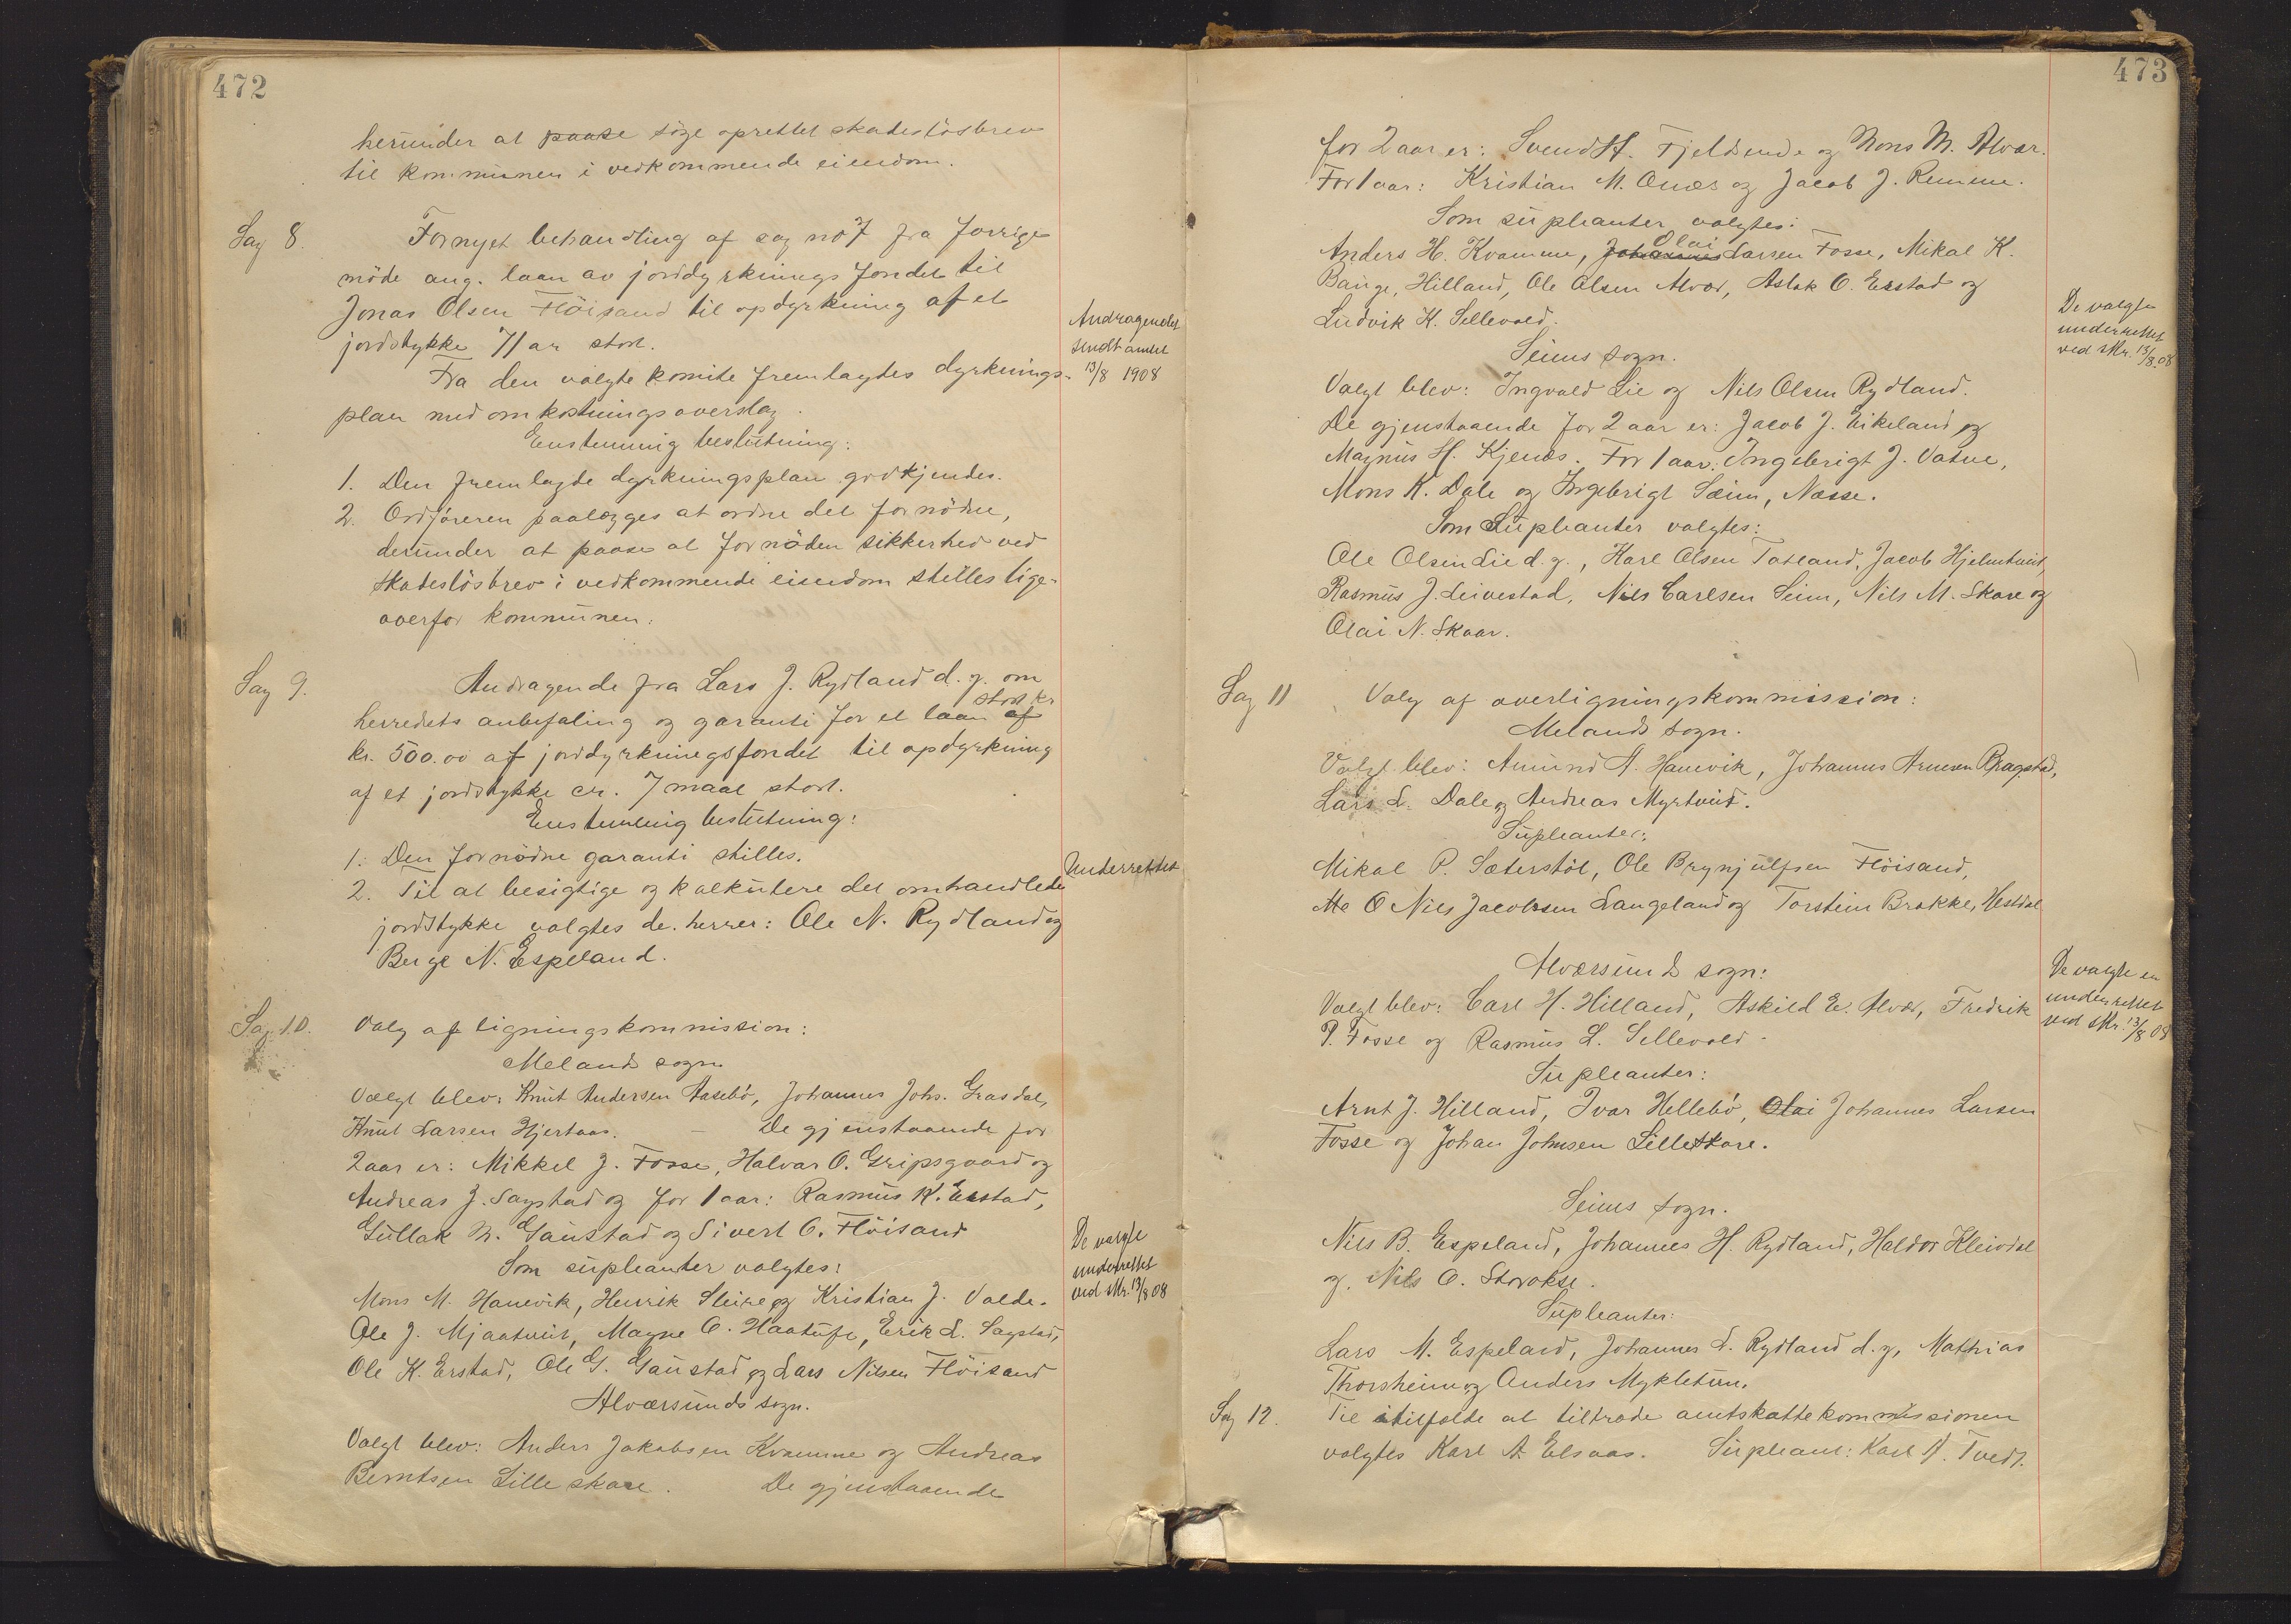 472
herunder at paase söge oprettet skadeslösbrev
til kommunen i vedkommende eiendom.
Sag 8. Fornyet behandling af sag no 7 fra forrige
möde ang. laan av jorddyrkningsfondet til
Jonas Olsen Flöisand til opdyrkning af et
jordstykke 71 ar stort.
Andragendet
sendt amtet
13/8 1908
Fra den valgte komite fremlagdes dyrknings-
plan med omkostningsoverslag.
Enstemmig beslutning:
1. Den fremlagde dyrkningsplan godkjendes.
2. Ordföreren paalægges at ordne det fornödne,
derunder at paase at fornöden sikkerhed ved
skadeslösbrev i vedkommende eiendom stilles lige-
overfor kommunen.
Sag 9. Andragende fra Lars J. Rydland d. y. om
herredets anbefaling og garanti for et laan af stort kr
kr. 500.00 af jorddyrkningsfondet til opdyrkning
af et jordstykke cr. 7 maal stort.
Enstemmig beslutning:
1. Den fornödne garanti stilles.
Underrettet
2. Til at besigtige og kalkulere det omhandlede
jordstykke valgtes de herrer: Ole N. Rydland og
Berge N. Espeland.
Sag 10. Valg af ligningskommission:
Melands sogn
Valgt blev: Knut Andersen Aasebö, Johannes Johs. Grasdal,
Knut Larsen Hjertaas. – De gjenstaaende for
2 aar er: Mikkel J. Fosse, Halvar O. Gripsgaard og
Andreas J. Sagstad og for 1 aar: Rasmus K. Erstad,
Gullak N. Gaustad og Sivert O. Flöisand
Som supleanter valgtes:
De valgte
underrettet
ved skr. 13/8 08
Mons M. Hanevik, Henrik Sleire og Kristian J. Valde.
Ole J. Mjaatveit, Magne O. Haatuft, Erik L. Sagstad,
Ole K. Erstad, Ole G. Gaustad og Lars Nilsen Flöisand
Alværsunds sogn.
Valgt blev: Anders Jakobsen Kvamme og Andreas
Berntsen Lilleskare. De gjenstaaende
473
for 2 aar er: Svend H. Fjeldsende og Mons M. Alvær.
For 1 aar: Kristian M. Quæs og Jacob J. Remme.
Som supleanter valgtes:
Anders H. Kvamme, Johannes Olai Larsen Fosse, Mikal K.
Bauge, Hilland, Ole Olsen Alvær, Aslak O. Erstad og
Ludvik K. Sellevold.
De valgte
underrettet
ved skr. 13/8 08
Seims sogn.
Valgt blev: Ingvald Lie og Nils Olsen Rydland.
De gjenstaaende for 2 aar er: Jacob J. Eikeland og
Magnus H. Kjenæs. For 1 aar: Ingebrigt J. Vatne,
Mons K. Dale og Ingebrigt Sæim, Næsse.
Som Supleanter valgtes:
Ole Olsen Lie d. y., Karl Olsen Tatland, Jacob Hjelmtveit,
Rasmus J. Leivestad, Nils Carlsen Seim, Nils M. Skare og
Olai N. Skaar.
Sag 11 Valg af overligningskommission:
Melands sogn.
Valgt blev: Amund A. Hanevik, Johannes Arnesen Rragstad,
Lars L. Dale og Andreas Myrtveit.
Supleanter:
Mikal P. Sæterstöl, Ole Brynjulfsen Flöisand,
O Nils Jacobsen Langeland og Torstein Brakke, Hestdal
Alværsunds sogn:
Valgt blev: Carl H. Hilland, Askild E. Alvær, Fredrik
P. Fosse og Rasmus L. Sellevold.
De valgte er
underrettet
ved skr. 13/8 08
Supleanter:
Arnt J. Hilland, Ivar Hellebö, Olai Johannes Larsen
Fosse og Johan Johnsen Lilleskare.
Seims sogn.
Nils B. Espeland, Johannes H. Rydland, Haldor Kleivdal
og Nils O. Storokse.
Supleanter:
Lars M. Espeland, Johannes L. Rydland d. y, Mathias
Thorsheim og Anders Mykletun.
Sag 12. Til i tilfælde at tiltræde amtskattekommissionen
valgtes Karl A. Elsaas. Supleant: Karl A. Tvedt.